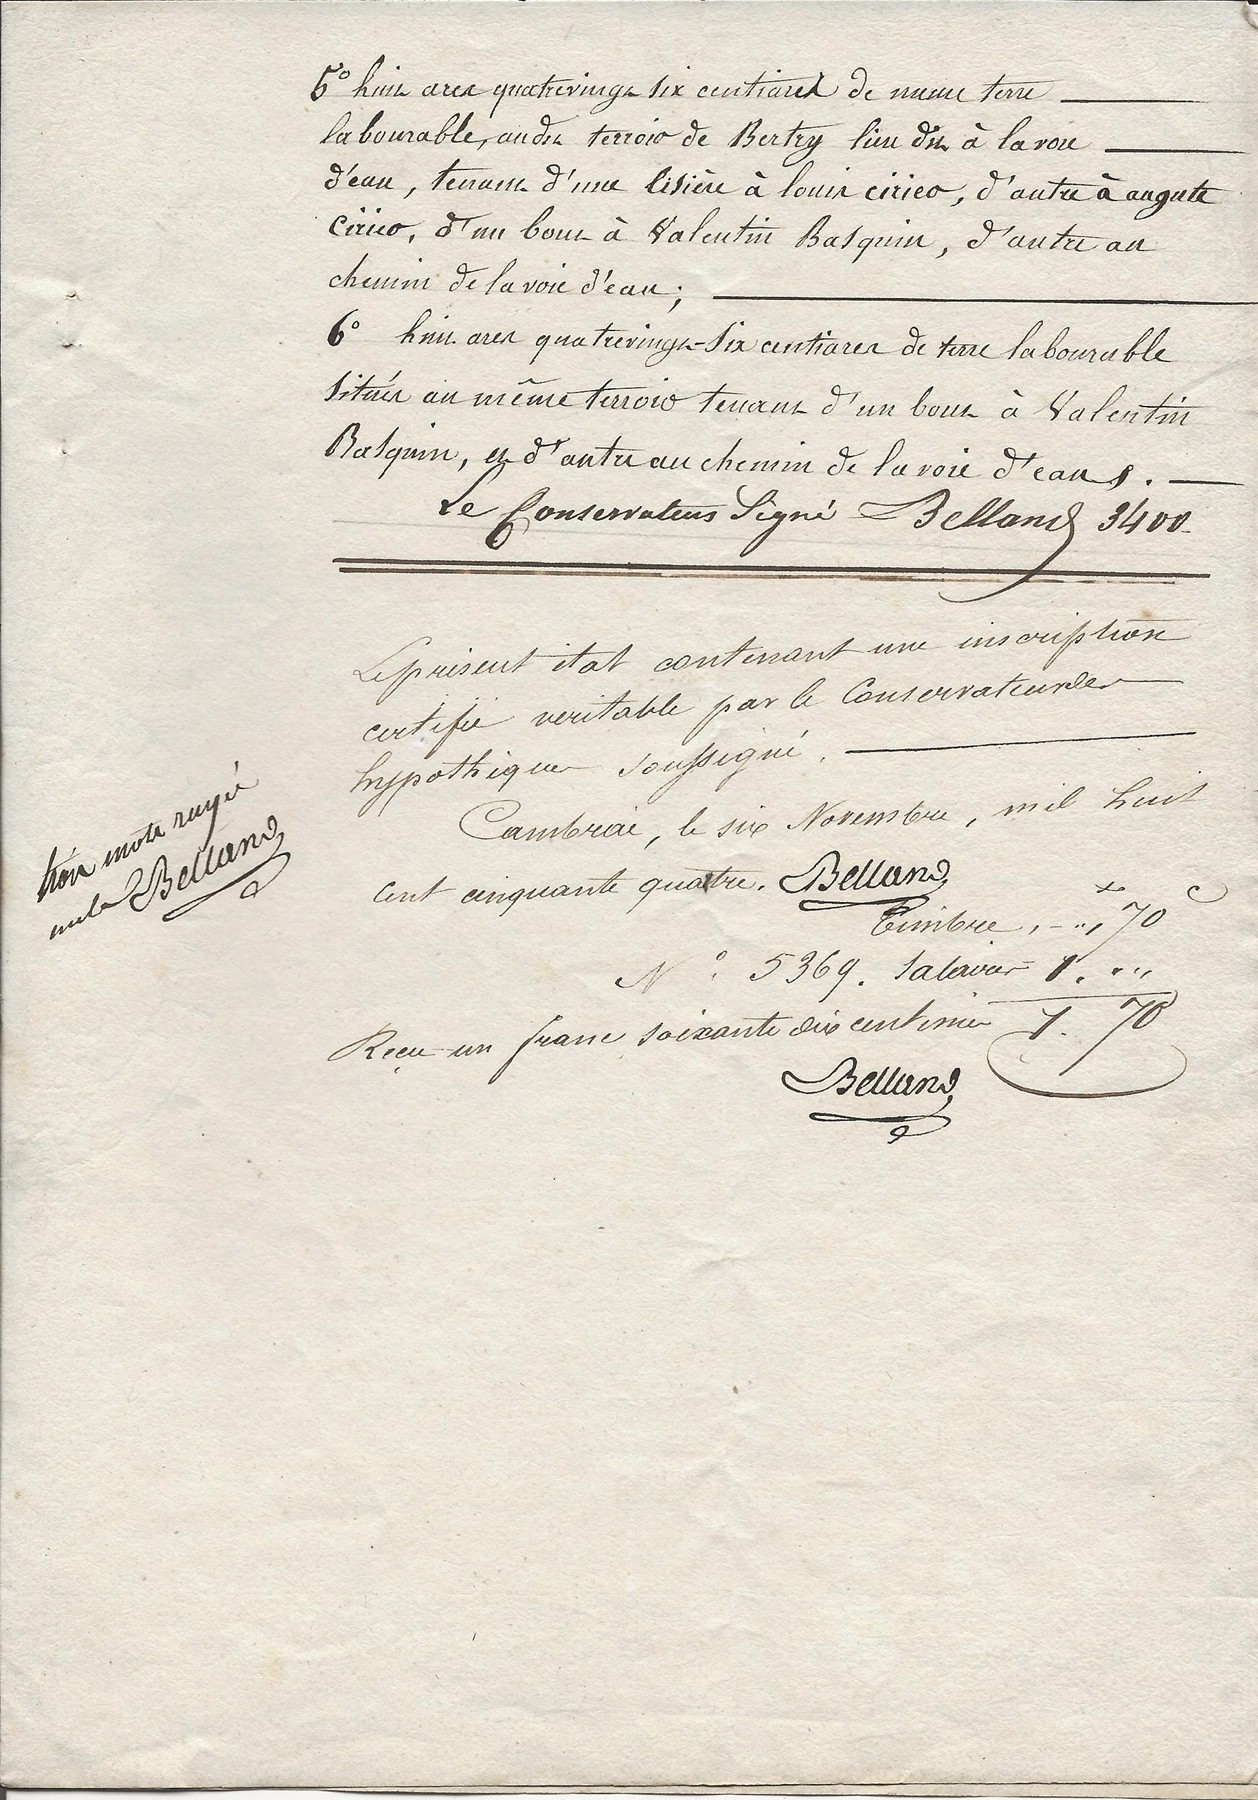 5° huit ares quatrevingt six centiares de même terre
labourable, audit terroir de Bertry lieu dit à la voie
d'eau, tenant d'une lisière à louis cirico, d'autre à auguste
cirico, d'un bout à Valentin Basquin, d'autre au
chemin de la voie d'eau;
6° huit ares quatrevingt-six centiares de terre labourable
situés au même terroir tenant d'un bout à Valentin
Basquin, et d'autre au chemin de la voie d'eau.
Le Conservateur Signé Belland 3400
Le présent état contenant une inscription
certifié véritable par le Conservateur des
hypothèques soussigné.
trois mots rayés
nuls Belland
Cambrai, le six Novembre, mil huit
cent cinquante quatre. Belland
Timbre, - ,, 70 c
N° 5369. Salaire 1. ,,
Reçu un franc soixante dix centimes 1. 70
Belland